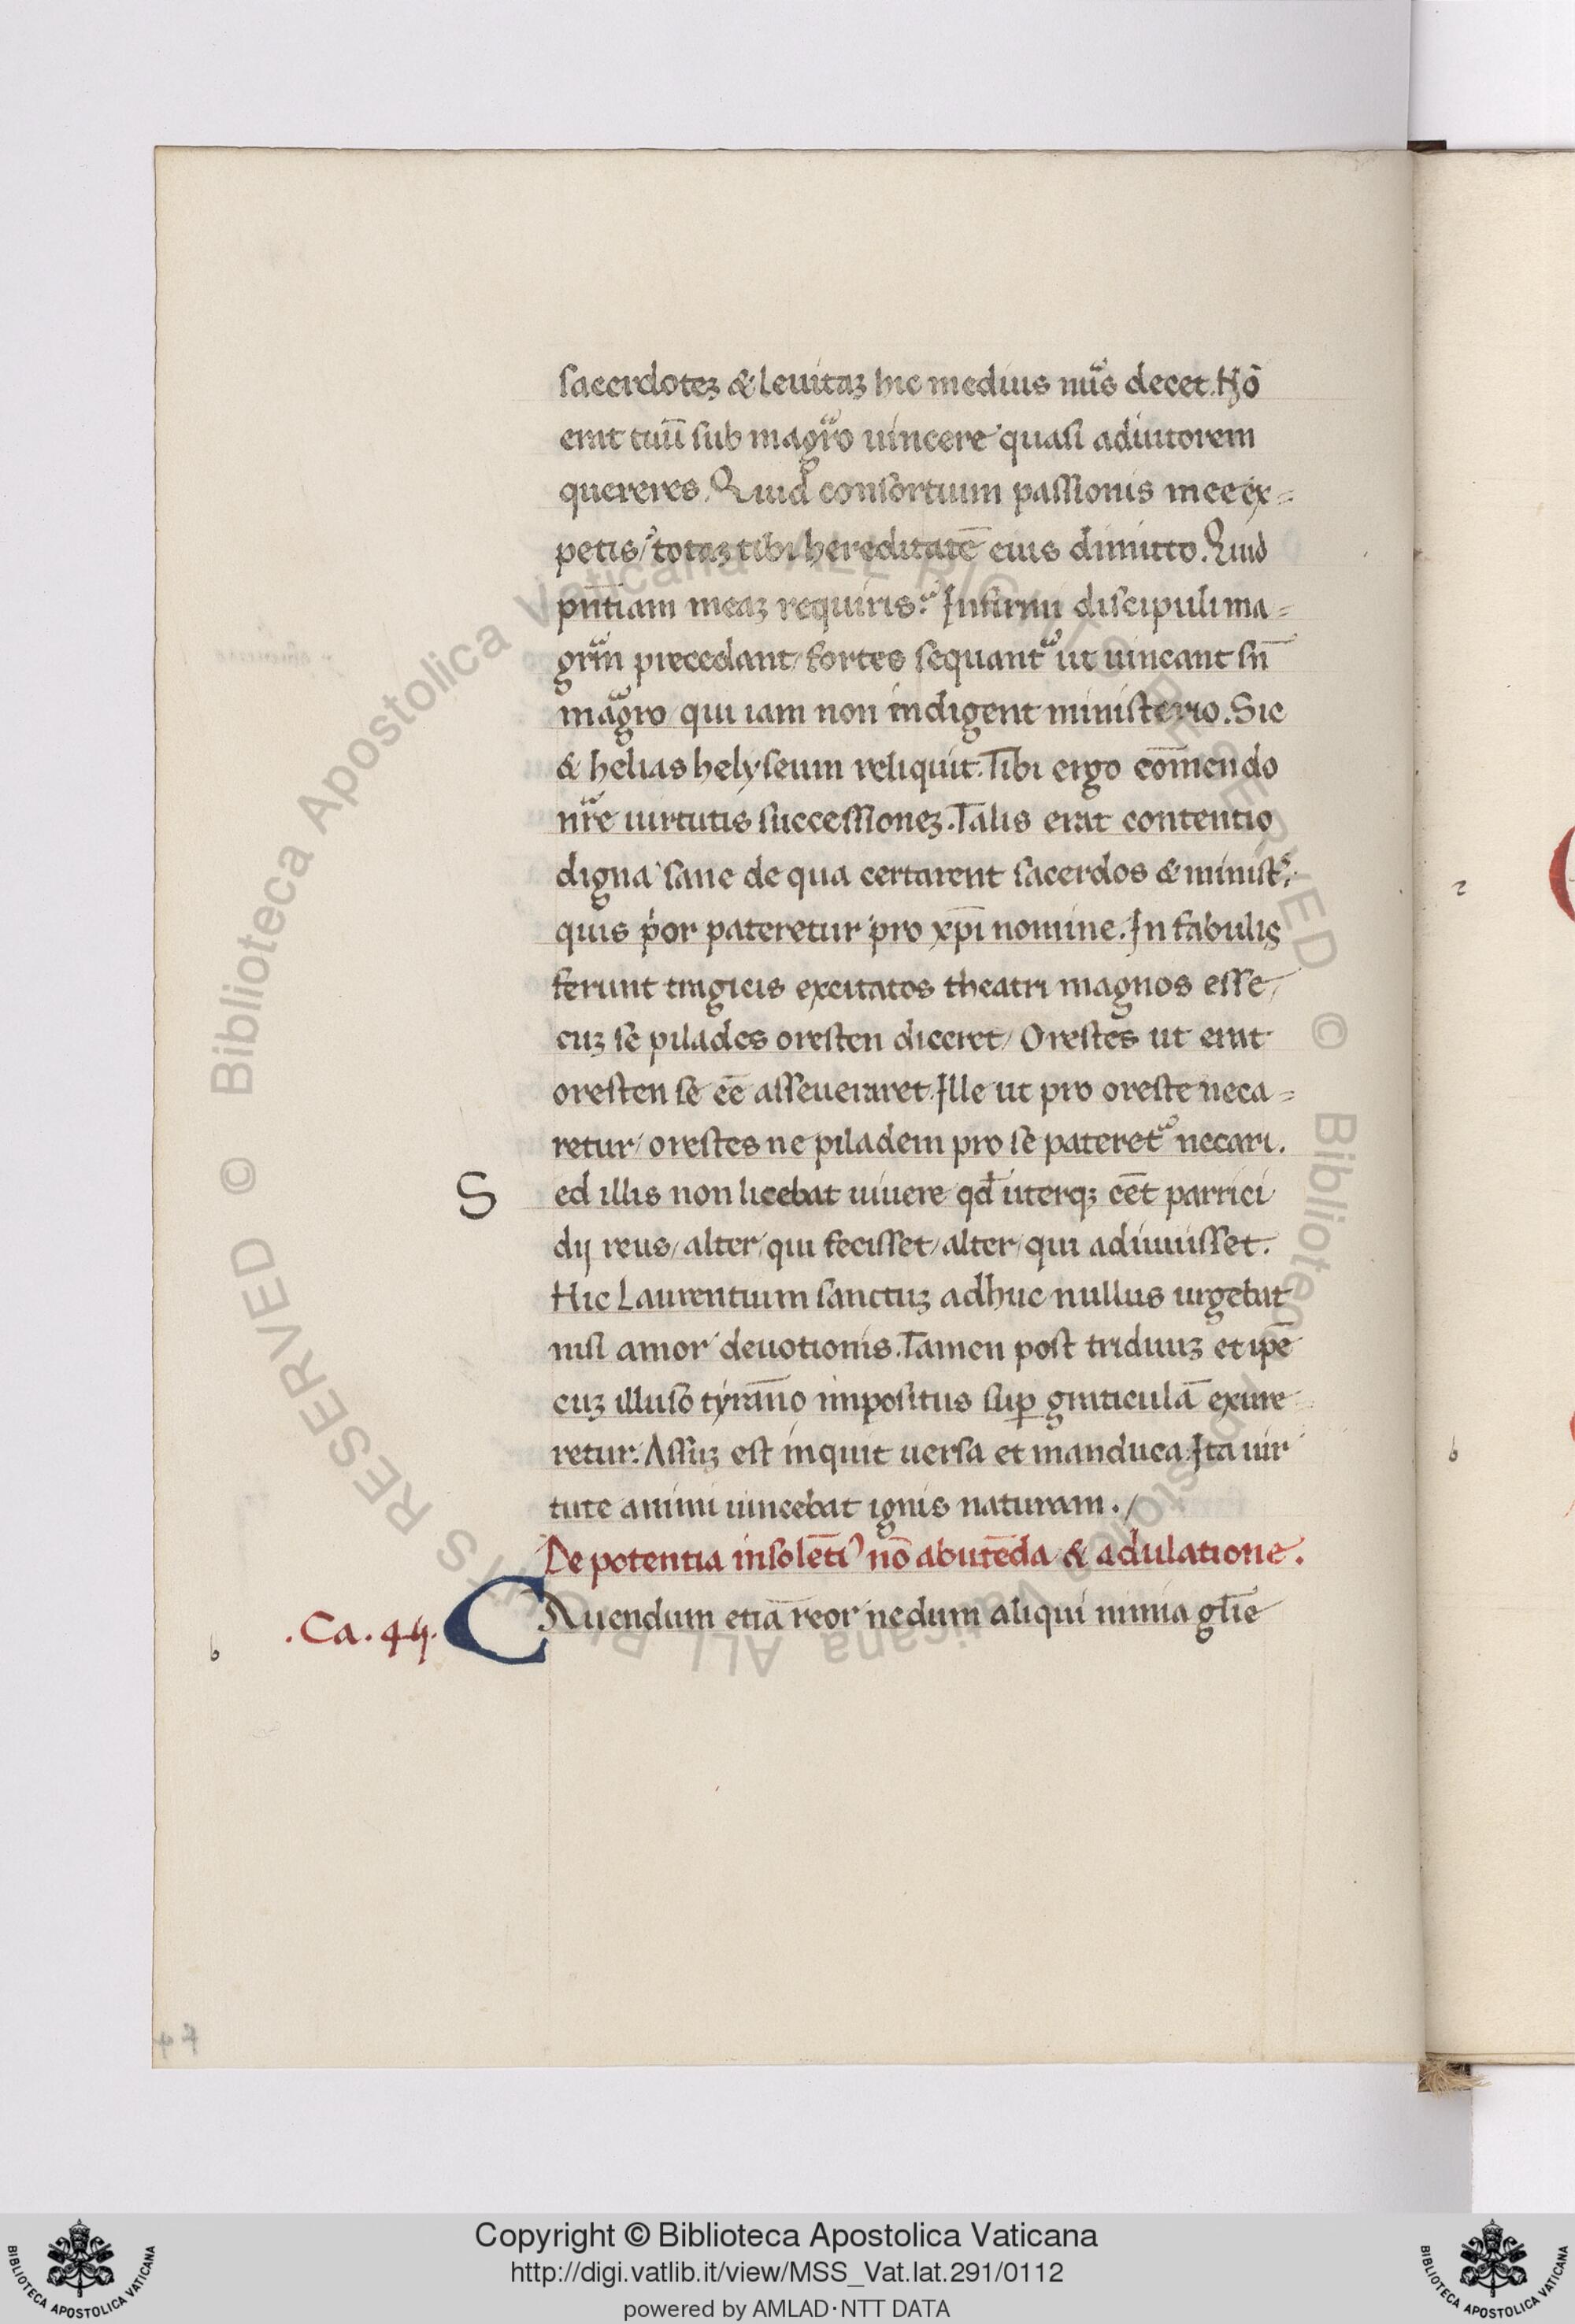 sacerdoteʒ & leuitaʒ hic medius nũs decet. Nõ
erat tuũ sub magr̃o uincere quasi adiutorem
quereres. Quid consortium passionis mee ex=
petis / totaʒ tibi hereditatẽ eius dimitto. Quid
pñtiam meaʒ requiris? Infirmi discipuli ma=
grm̃ precedant / fortes sequant᷑ ut uincant sñ
magr̃o / qui iam non indigent ministerio. Sic
& helias helyseum reliquit. Tibi ergo com̃endo
nr̃e uirtutis successioneʒ. Talis erat contentio
digna sane de qua certarent sacerdos & minist̃
quis pͥor pateretur pro xp̃i nomine. In fabulis
ferunt tragicis excitatos theatri magnos esse /
cuʒ se pilades oresten diceret / Orestes ut erat
oresten se eẽ asseueraret. Ille ut pro oreste neca=
retur / orestes ne piladem pro se pateret᷑ necari.
S ed illis non licebat uiuere qđ uterqʒ eẽt parrici
dij reus / alter qui fecisset / alter / qui adiuuisset.
Hic Laurentium sanctuʒ adhuc nullus urgebat
nisi amor deuotionis. Tamen post triduuʒ et ipẽ
cuʒ illuso tyrañno impositus sup̱ graticulã exure
retur. Assuʒ est inquit uersa et manduca. Ita uir
tute animi uincebat ignis naturam. /
De potentia insolẽti⁹ nõ abutẽda & adulatione.
.Ca. 4ij. CAuendum etiã reor nedum aliqui nimia gl̃ie
b
2
b
47
© Biblioteca Apostolica Vaticana ALL RIGHTS RESERVED © Biblioteca Apostolica Vaticana ALL RIGHTS RESERVED
Copyright © Biblioteca Apostolica Vaticana
http://digi.vatlib.it/view/MSS_Vat.lat.291/0112
powered by AMLAD·NTT DATA
BIBLIOTECA APOSTOLICA VATICANA
BIBLIOTECA APOSTOLICA VATICANA